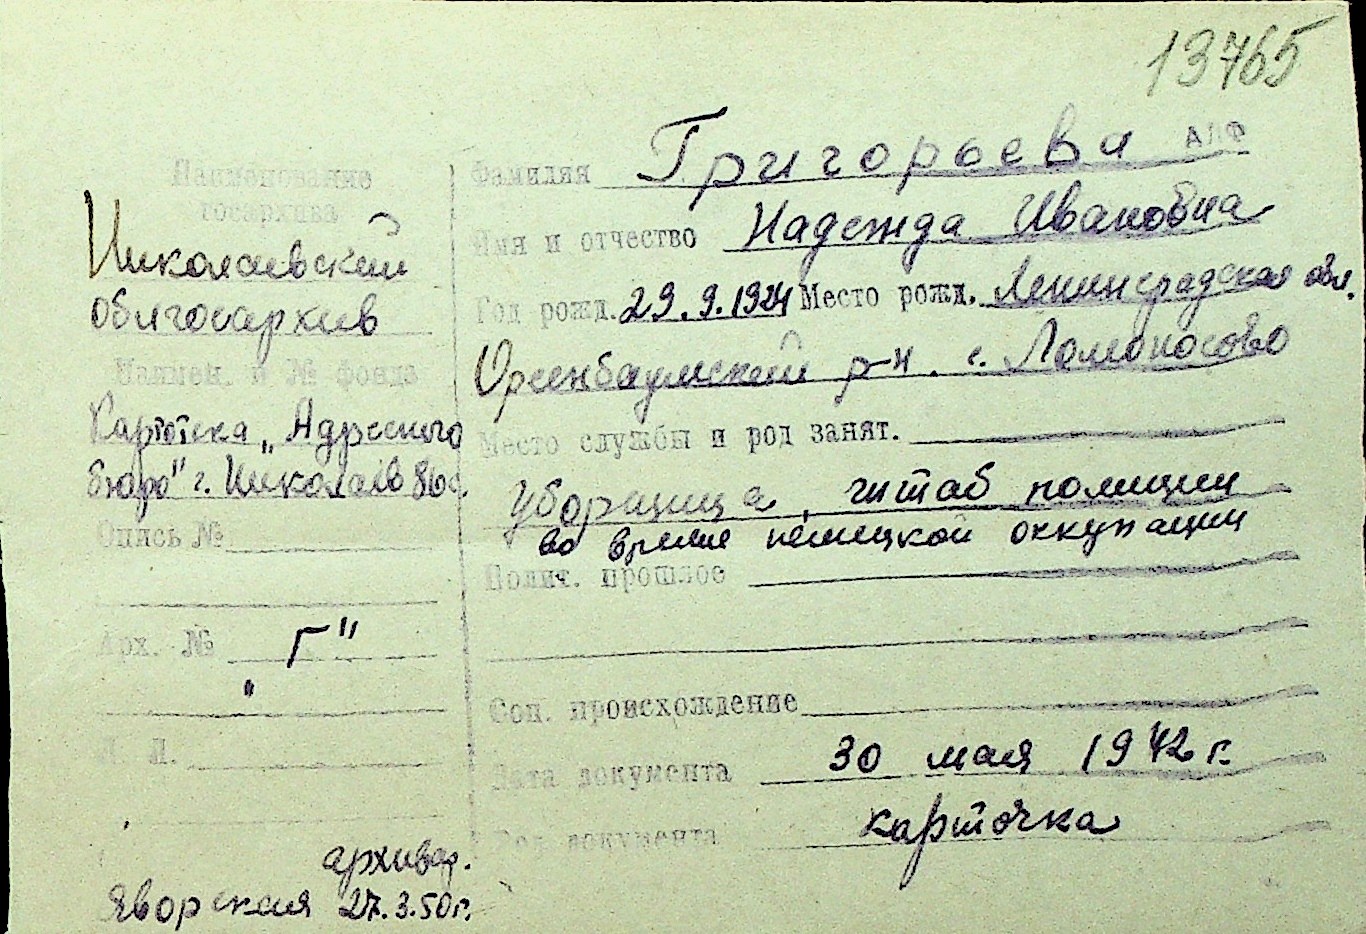 13765
АЛФ
Наименование
госархива
Николаевский
облгосархив
Наимен. и № фонда
Картотека „Адресного
бюро" г. Николаев
Опись №
Арх. № „Г"
Л. Л.
архивар.
Яворская 27.3.50г.
Фамилия Григорьева
Имя и отчество Надежда Ивановна
Год рожд. 29.9.1924 Место рожд. Ленинградская обл.
Ореенбаумский р-н. с. Ломоносово
Место службы и род занят.
Уборщица, штаб полиции
во время немецкой оккупации
Полит. прошлое
Соц. происхождение
Дата документа 30 мая 1942 г.
Род документа карточка